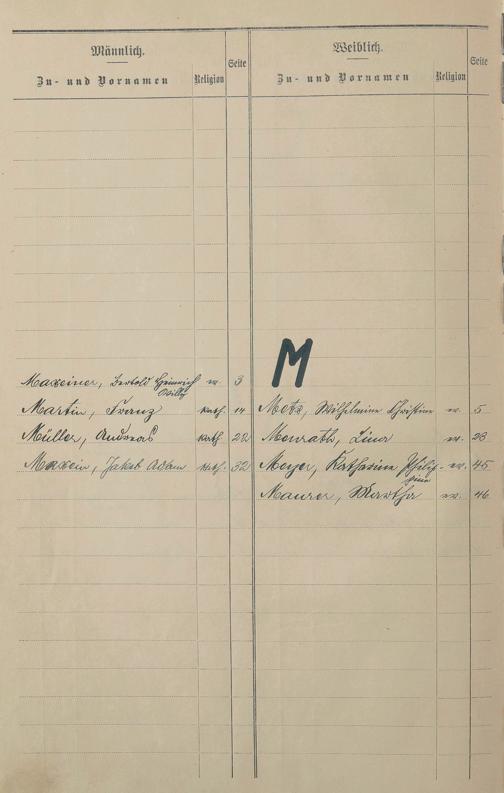 Männlich.
Zu- und Vornamen Religion Seite
Weiblich.
Zu- und Vornamen Religion Seite
M
Maxeiner, Bertold Heinrich ev. 3
Willy
Martin, Franz kath. 14 Metz, Wilhelmine Christine ev. 5
Müller, Andreas kath. 22 Menrath, Lina ev. 23
Jakob Adam kath. 32 Meyer, Katharine Philip- ev. 45
pine
Maurer, Martha ev. 46